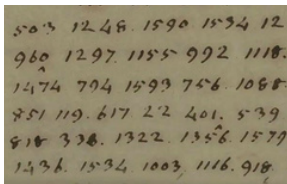 503 1248. 1590 1534 12
960 1297. 1155 992 1118.
1474 794 1593 756. 1088
851 119. 617 22 401. 539
818 336. 1322. 1356 1579
1436. 1534 1003 1116. 918.